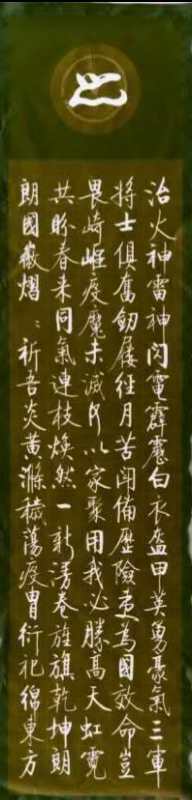 治火神雷神閃電霹靂白衣盔甲英勇豪氣三軍
將士俱奮劍屢往月苦闲備歷險夷為國效命豈
畏崎嶇疫魔未滅何以家聚用我必勝高天虹霓
共盼春来同氣連枝焕然一新漫卷旌旗乾坤朗
朗國徽熠熠祈吾炎黃滌穢蕩疫胄衍祀綿東方